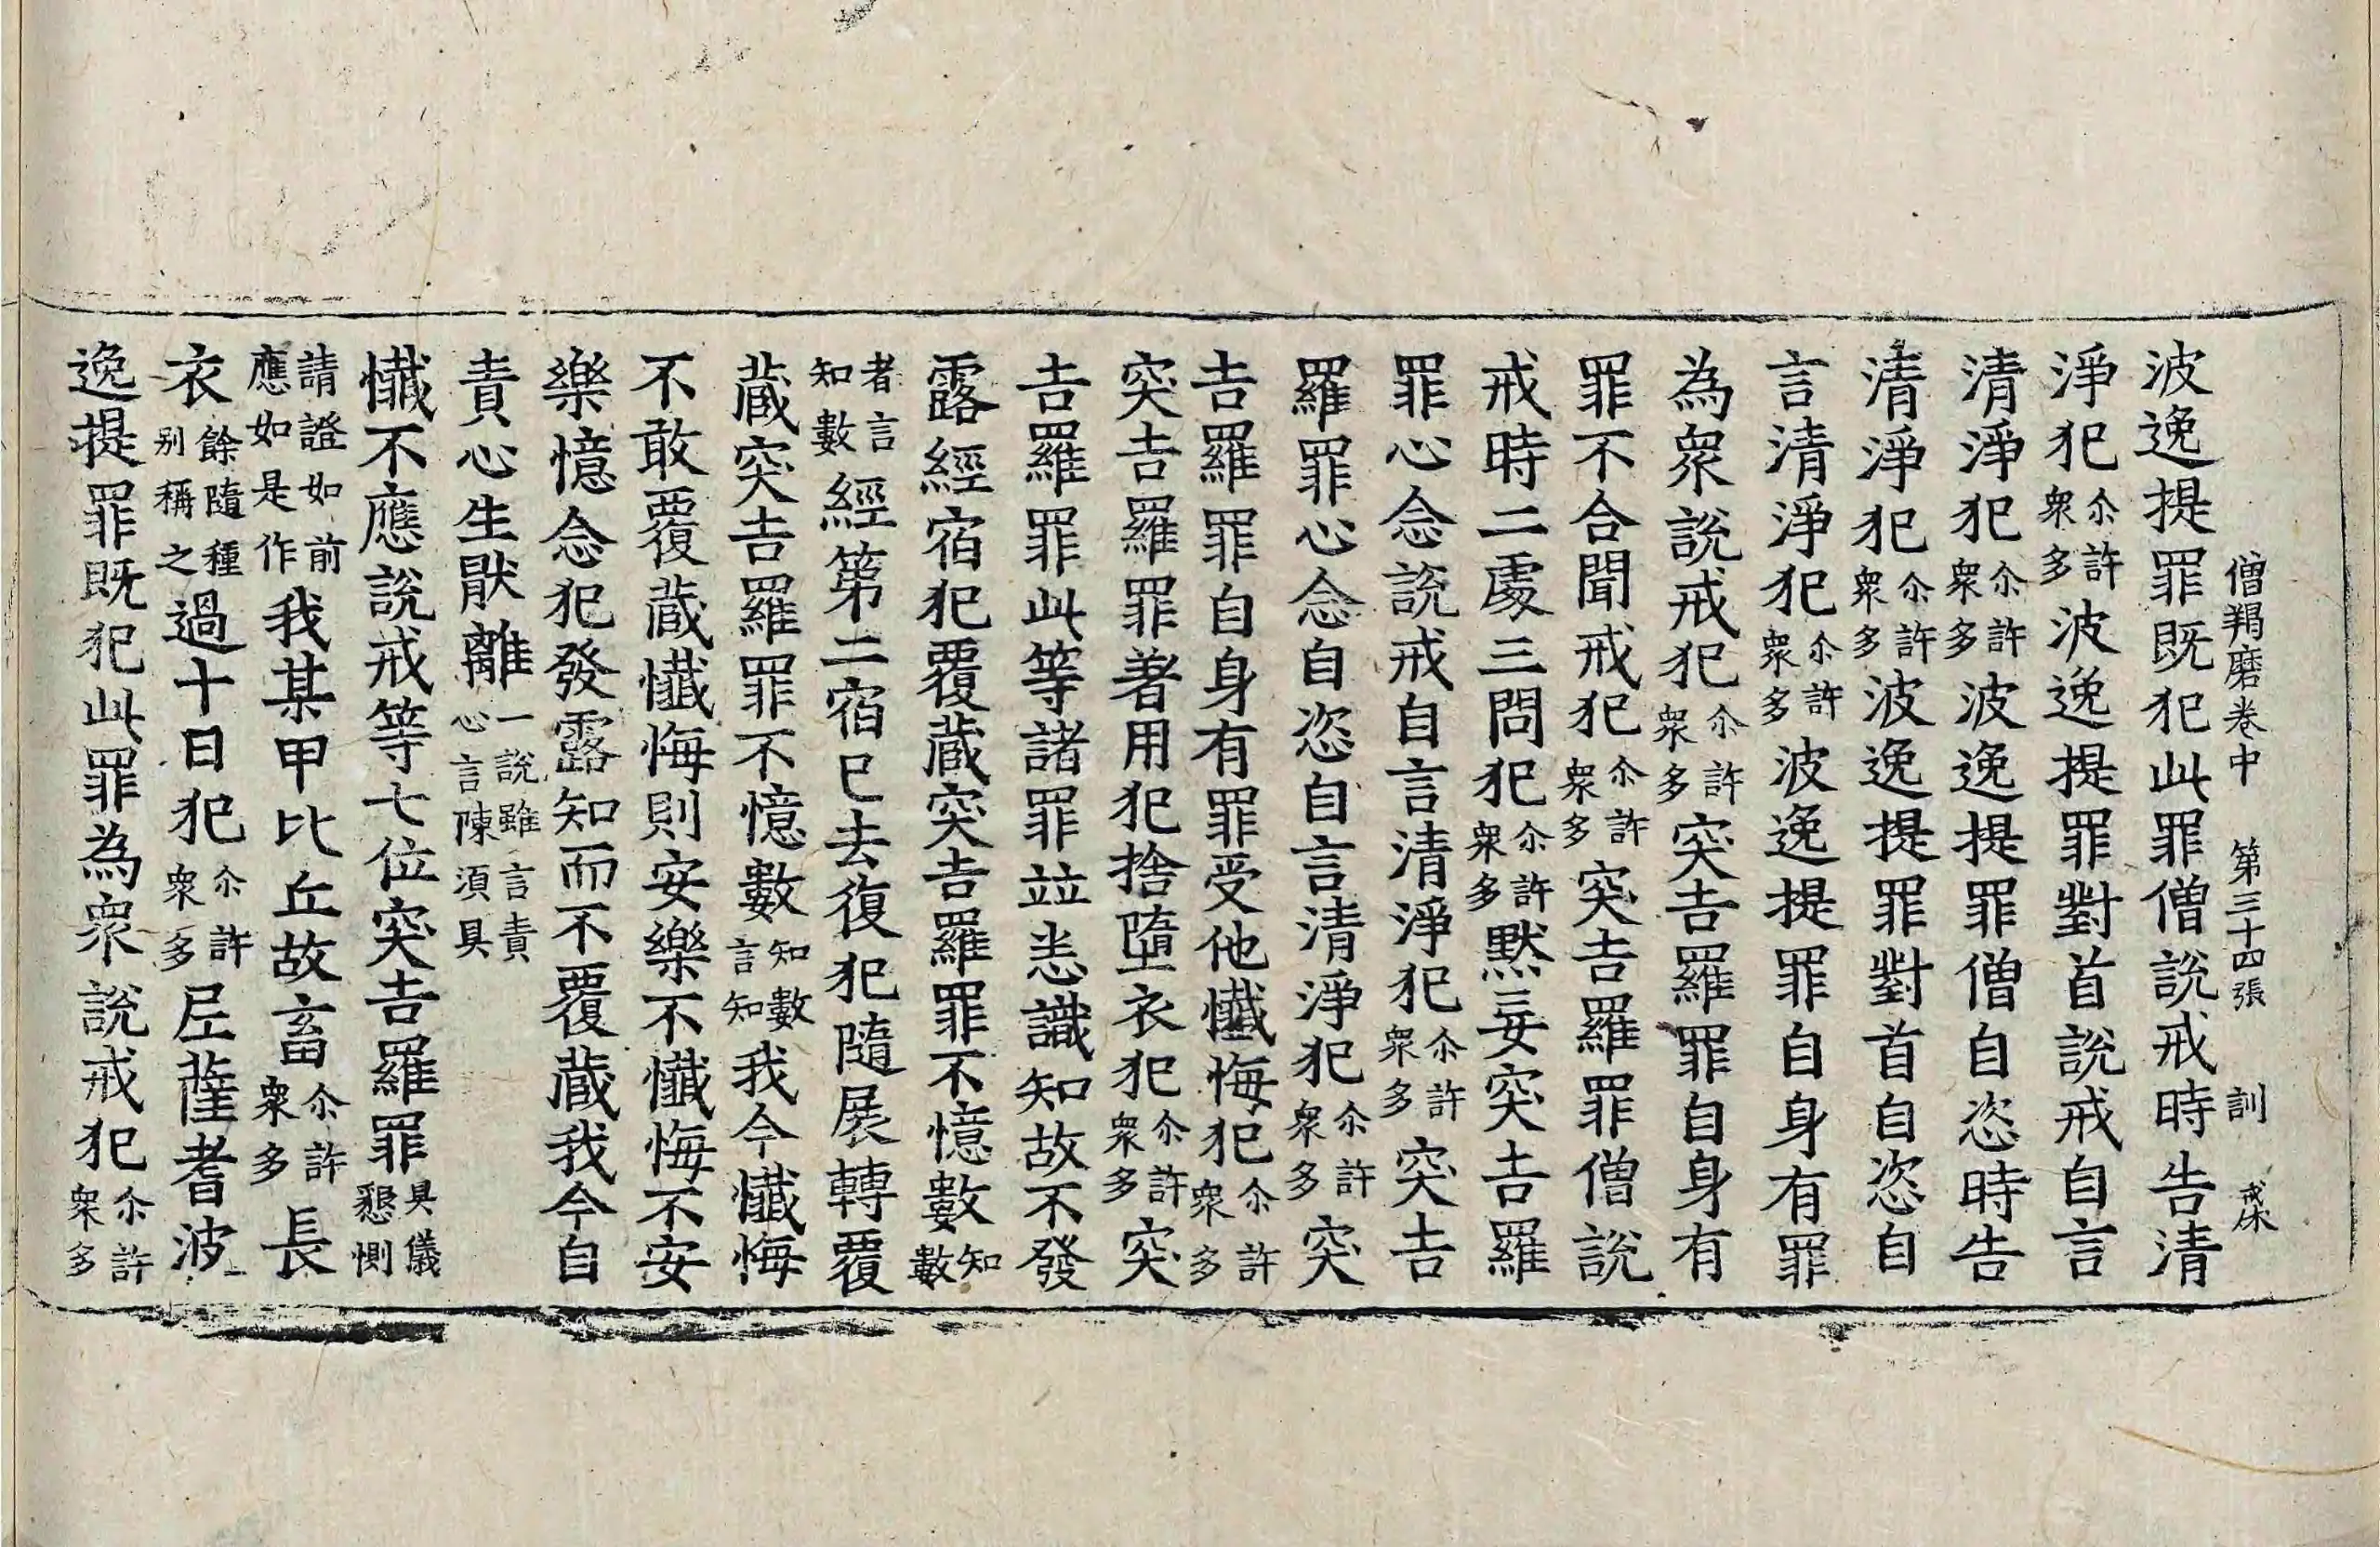 僧羯磨卷中 第三十四張 訓
波逸提罪既犯此罪僧說戒時告清
淨犯尒許衆多波逸提罪對首說戒自言
清淨犯尒許衆多波逸提罪僧自恣時告
清淨犯尒許衆多波逸提罪對首自恣自
言清淨犯尒許衆多波逸提罪自身有罪
為衆說戒犯尒許衆多突吉羅罪自身有
罪不合聞戒犯尒許衆多突吉羅罪僧說
戒時二處三問犯尒許衆多默妄突吉羅
罪心念說戒自言清淨犯尒許衆多突吉
羅罪心念自恣自言清淨犯尒許衆多突
吉羅罪自身有罪受他懺悔犯尒許衆多
突吉羅罪著用犯捨墮衣犯尒許衆多突
吉羅罪此等諸罪並悉識知故不發
露經宿犯覆藏突吉羅罪不憶數知數
者言知數經第二宿已去復犯隨展轉覆
藏突吉羅罪不憶數知數言知我今懺悔
不敢覆藏懺悔則安樂不懺悔不安
樂憶念犯發露知而不覆藏我今自
責心生猒離一說雖言責心言陳須具
懺不應說戒等七位突吉羅罪具儀懇惻
請證如前應如是作我某甲比丘故畜尒許衆多長
衣餘隨種别稱之過十日犯尒許衆多尼薩耆波
逸提罪既犯此罪為衆說戒犯尒許衆多